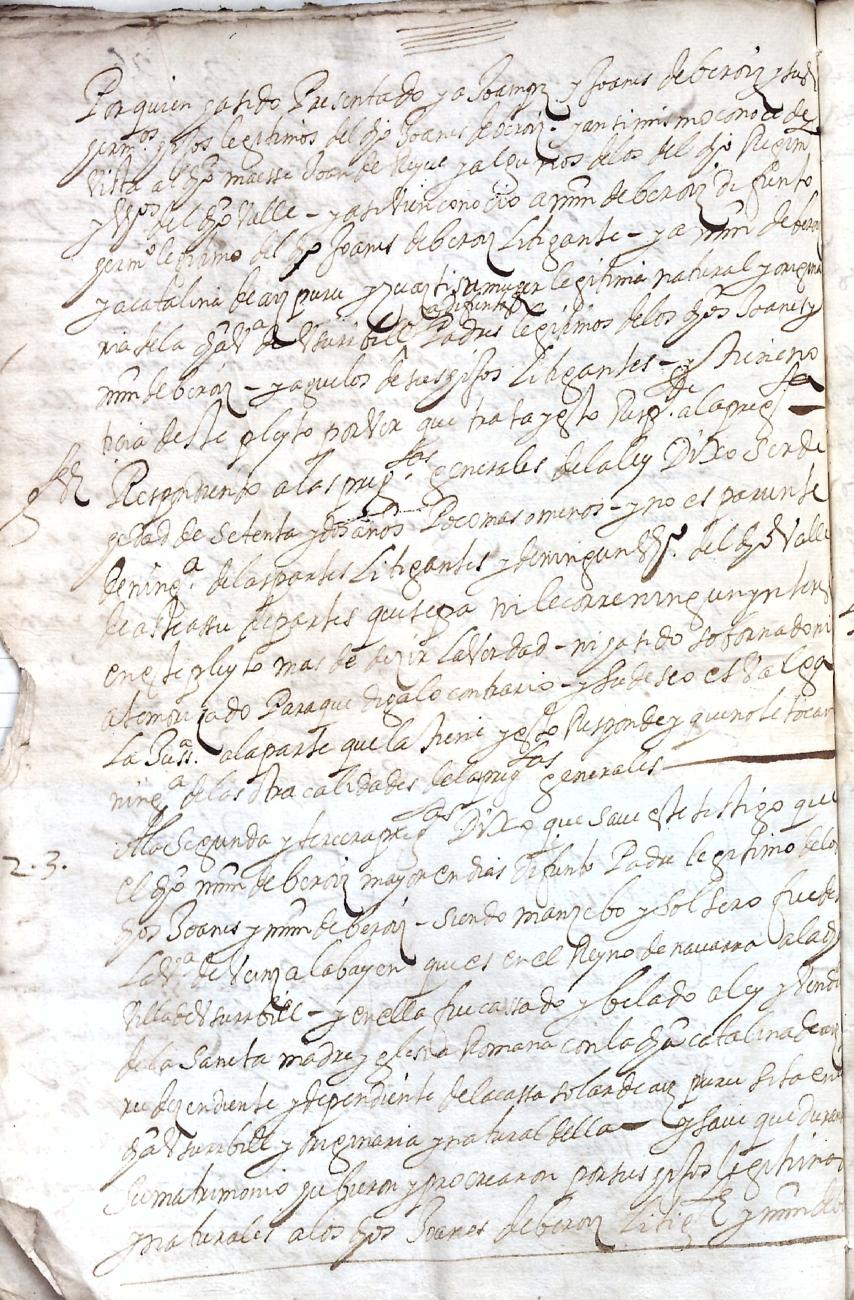 Por quien ha sido Presentado y a Joangoz y Joanes de beroiz y sus
herm^os hijos legitimos del dho Joanes de beroiz y ansimismo conoce de
vista al dho maesse Joan de y algunos de los del dho Regim^to
y v^os del dho Valle – y assi bien conocio a mrn de beroiz difunto
herm^o legitimo del dho Joanes de beroiz Litigante – y a mrn de beroiz
y a catalina de aiz puru y su muger legitima natural y origina
ria de la dha v^a de Usurbill difuntos Padres legitimos de los dhos Joanes y
mrn de beroiz – y aguelos de sus hijos Litigantes – y tiene no
ticia deste pleyto por ver que trata y esto Resp^de a la preg^ta
Respondiendo a las preg^tas generales de la ley Dixo ser de
hedad de setenta y dos años Poco mas o menos – y no es pariente
de ning^a de las partes Litigantes y de ningun v^o del dho Valle
de partes que sepa ni le corre ningun ynteres
en este pleyto mas de dezir la verdad – ni ha sido sobornado ni
atemorizado Para que diga lo contrario – y su deseo es Valga
La Just^a a la parte que la tiene y esto Responde y que no le tocan
ning^a de las otra calidades de las preg^tas generales
2.3. A la Segunda y tercera preg^tas Dixo que save este testigo que
el dho mrn de beroiz mayor en dias difunto Padre legitimo de los
dhos Joanes y mrn de beroiz – siendo manzebo y soltero fue de
La v^a de Veinza labayen que es en el Reyno de navarra a la dha
villa de Usurbill – y en ella fue cassado y belado a ley y vendi
de la Sancta madre yglesia Romana con la dha catalina de aiz
ru dezendiente y dependiente de la cassa solar de aiz puru sita en
dha Usurbill y originaria y natural della – y save que durante
Su matrimonio hubieron y procrearon por sus hijos legitimos
y naturales a los dhos Joanes de beroiz Litig^te y mrn de be